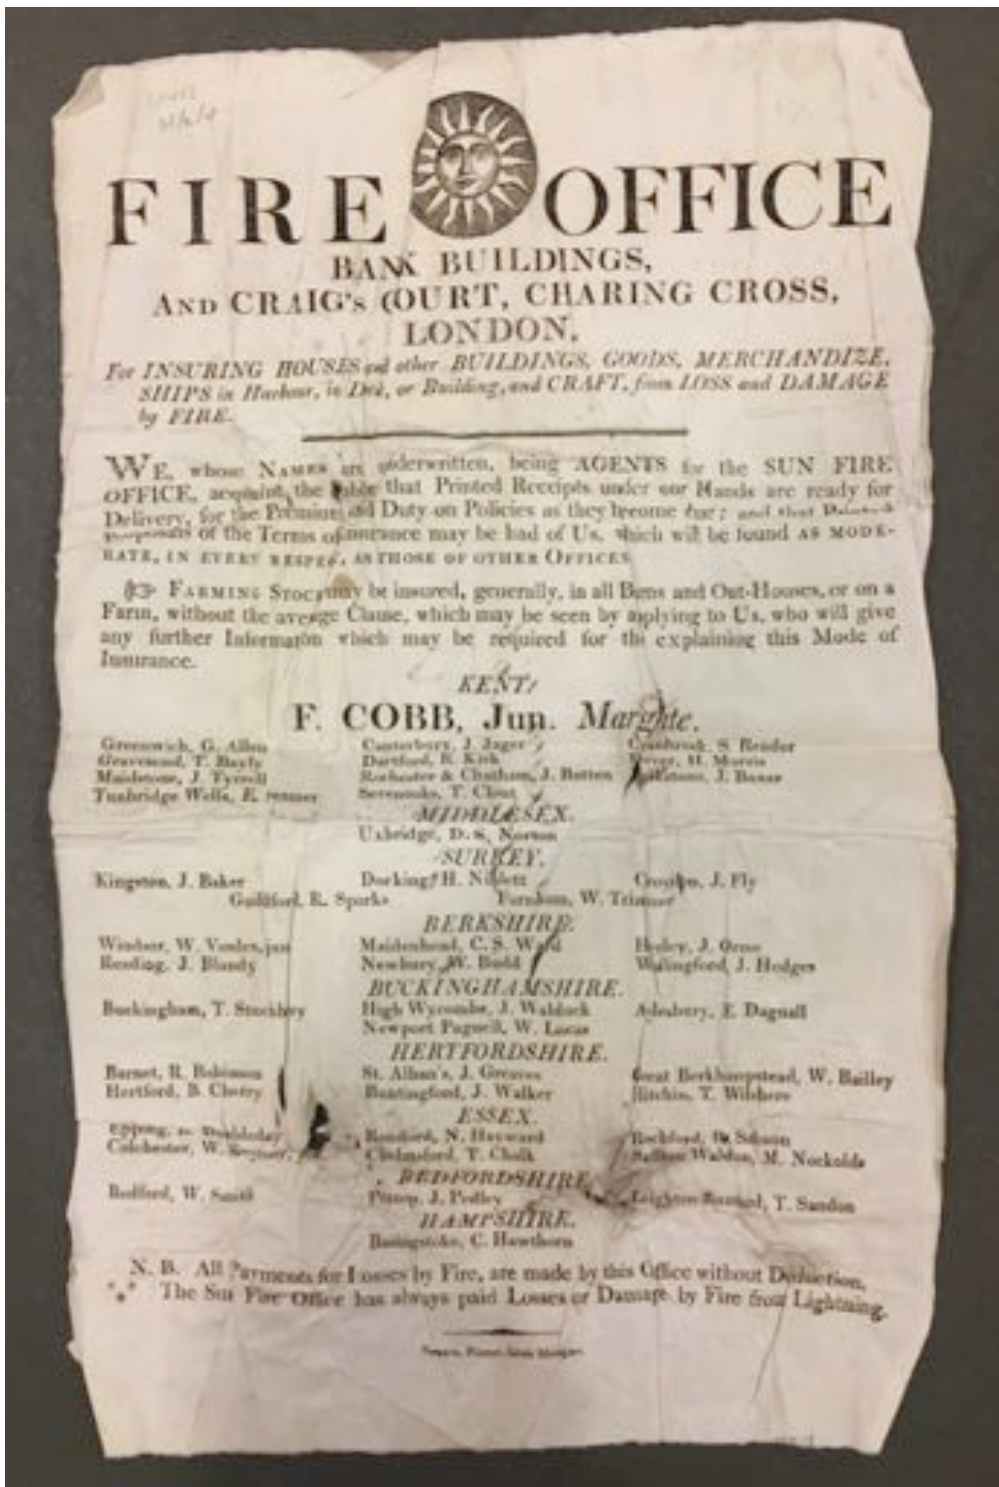 FIRE OFFICE
BANK BUILDINGS,
AND CRAIG's COURT, CHARING CROSS,
LONDON,
For INSURING HOUSES and other BUILDINGS, GOODS, MERCHANDIZE,
SHIPS in Harbour, in Dock, or Building, and CRAFT, from LOSS and DAMAGE
by FIRE.
WE, whose NAMES are underwritten, being AGENTS for the SUN FIRE
OFFICE, acquaint the Public that Printed Receipts under our Hands are ready for
Delivery, for the Premium and Duty on Policies as they become due; and that Printed
of the Terms of Insurance may be had of Us, which will be found AS MODE-
RATE, IN EVERY RESPECT, AS THOSE OF OTHER OFFICES
FARMING STOCK may be insured, generally, in all Barns and Out-Houses, or on a
Farm, without the average Clause, which may be seen by applying to Us, who will give
any further Information which may be required for the explaining this Mode of
Insurance.
KENT,
F. COBB, Jun. Marghte.
Greenwich, G. Allen Canterbury, J. Jager Cranbrook, S. Reader
Gravesend, T. Dartford, R. Kirk H. Morris
Maidstone, J. Tyrrell Rochester & Chatham, J. Batten J.
Tunbridge Wells, E. Sevenoaks, T. Clout
MIDDLESEX.
Uxbridge, D. S. Norton
SURREY.
Kingston, J. Baker Dorking, H. Croydon, J. Fly
Guildford, R. Sparks Farnham, W. Trimmer
BERKSHIRE.
Windsor, W. Maidenhead, C. S. J.
Reading, J. Blandy Newbury, W. Budd Wallingford, J. Hedges
BUCKINGHAMSHIRE.
Buckingham, T. High Wycombe, J. Aylesbury, E. Dagnall
Newport Pagnell, W. Lucas
HERTFORDSHIRE.
Barnet, R. Robinson St. Alban's, J. Greaves Great Berkhampstead, W. Bailey
Hertford, B. Cherry Buntingford, J. Walker Hitchin, T. Wilshere
ESSEX.
Epping, Doubleday Romford, N. Hayward Rochford,
Colchester, W. Chelmsford, T. Chalk Saffron Waldon, M. Nockolds
BEDFORDSHIRE.
Bedford, W. Smith J. Pedley Leighton Buzzard, T. Sandon
HAMPSHIRE.
Basingstoke, C. Hawthorn
N. B. All Payments for Losses by Fire, are made by this Office without Deduction.
*** The Sun Fire Office has always paid Losses or Damage by Fire from Lightning.